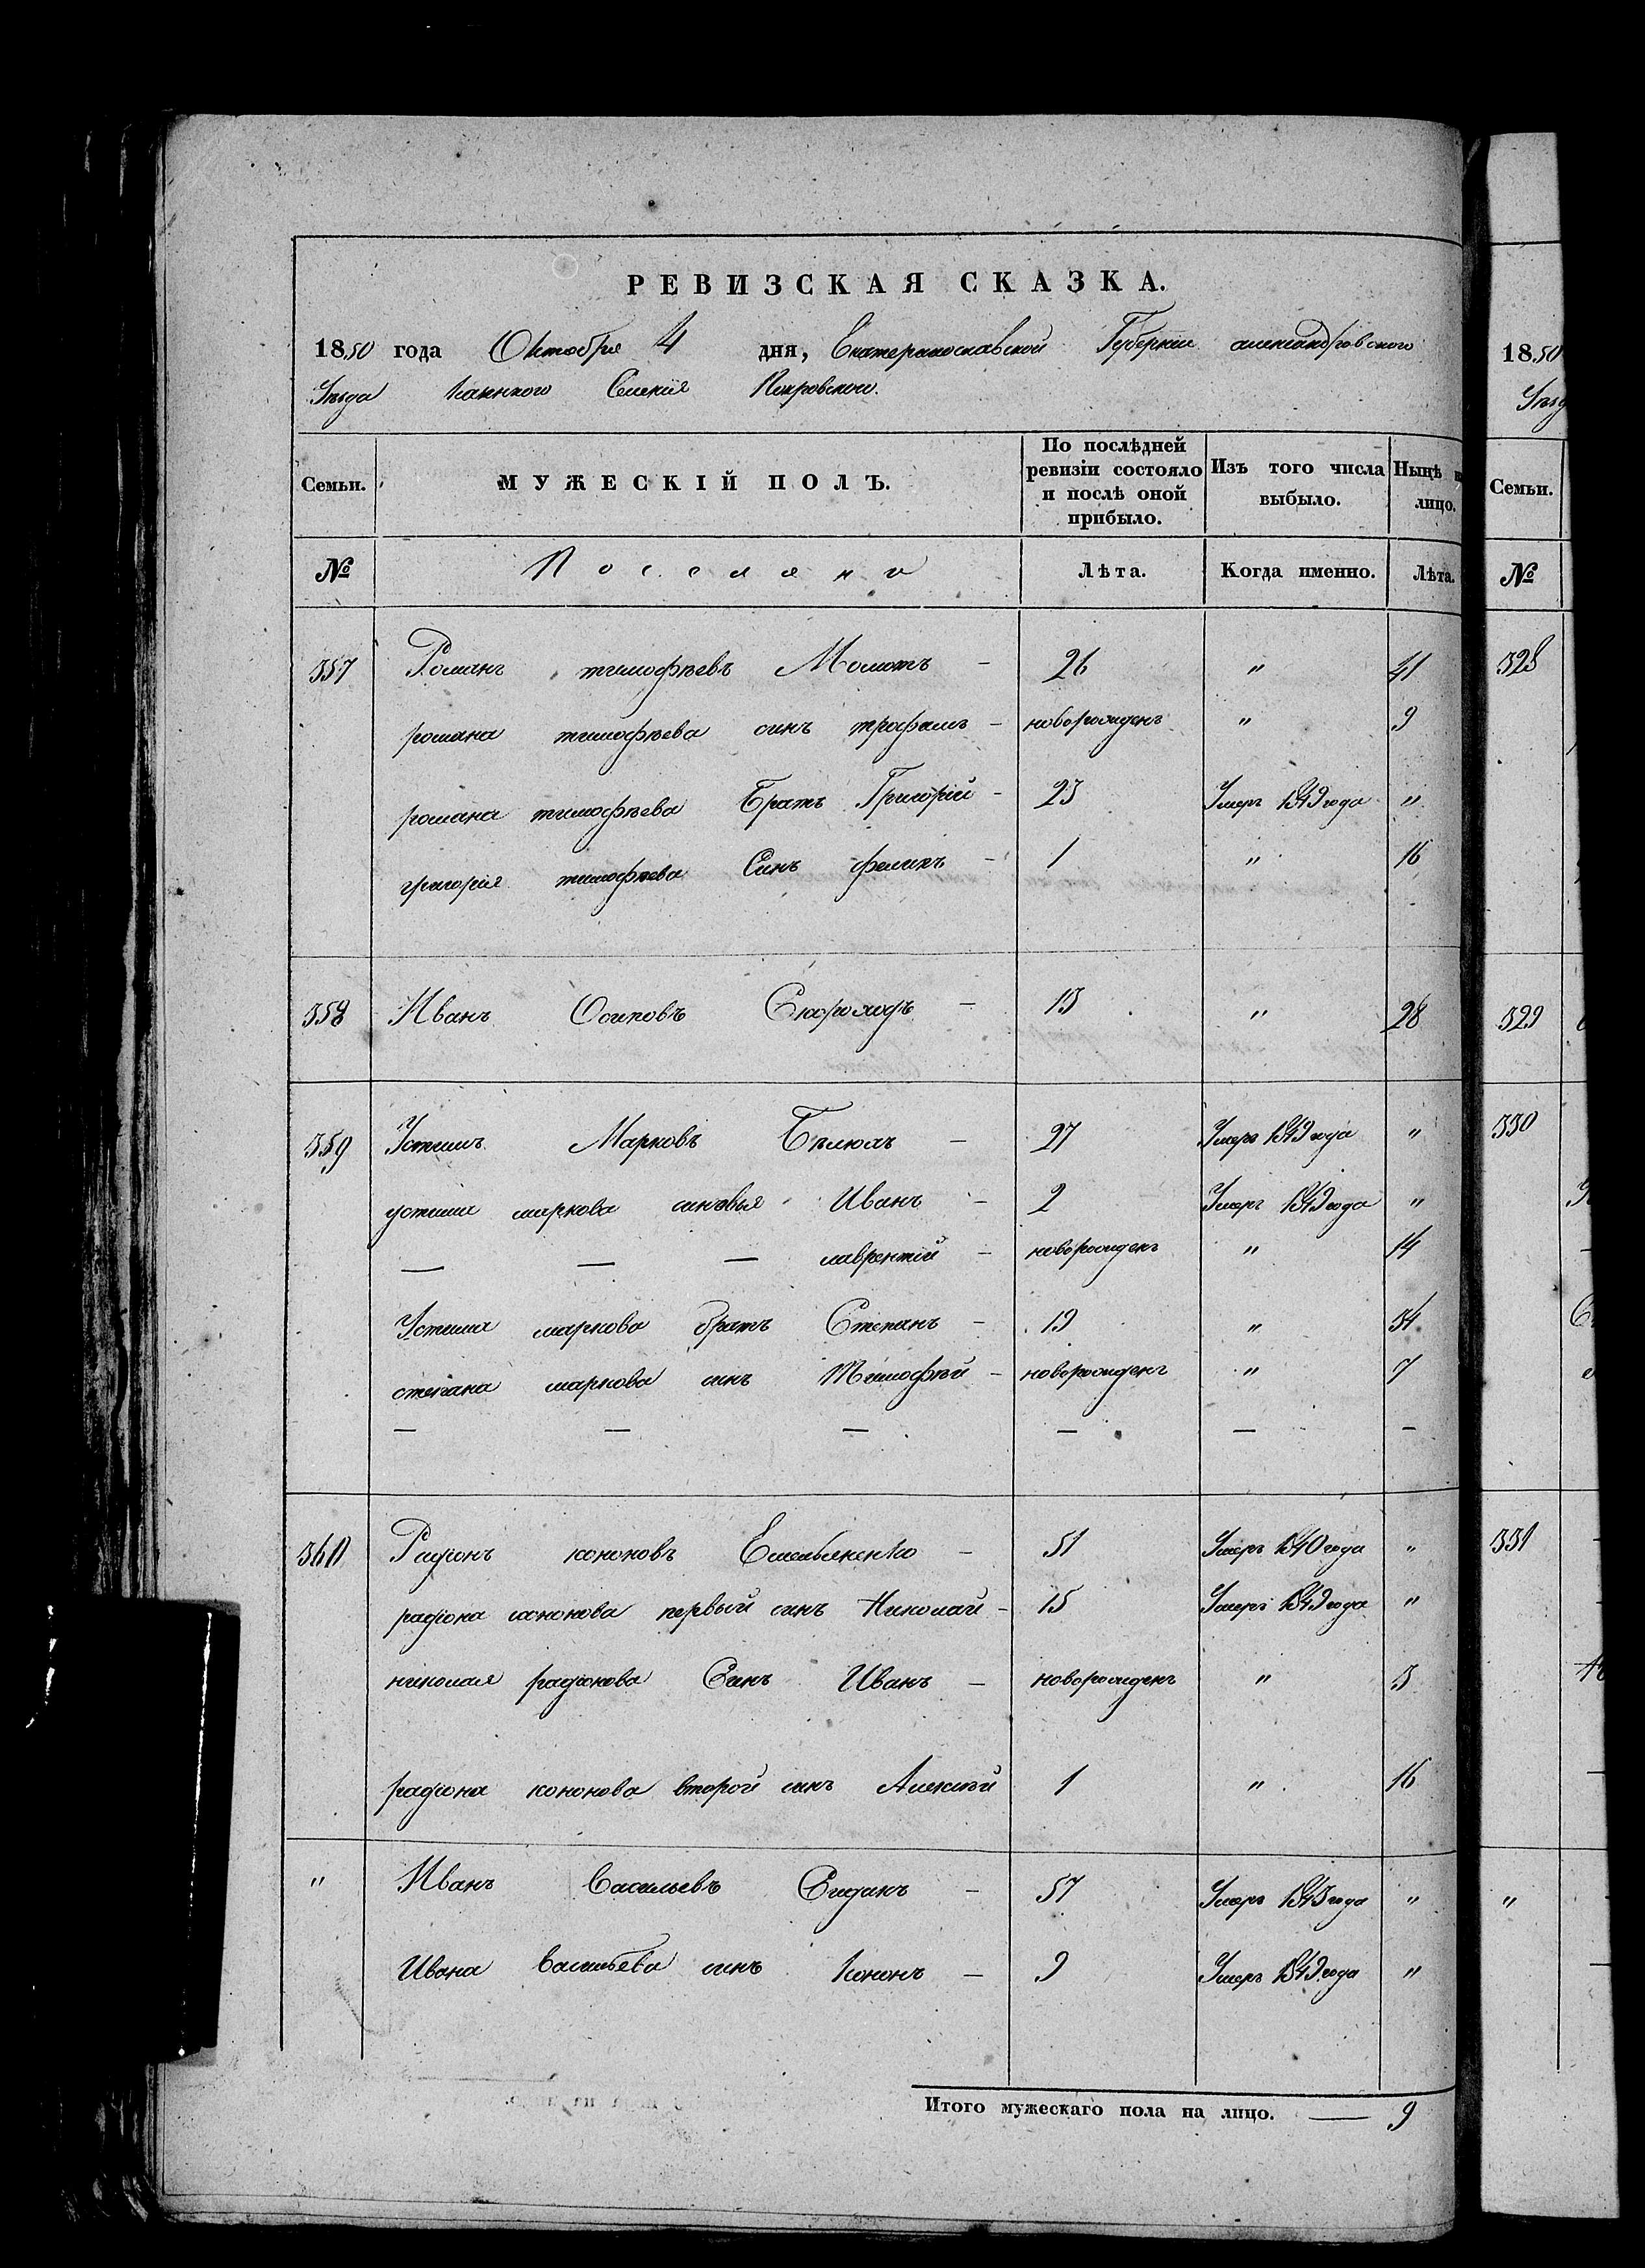 РЕВИЗСКАЯ СКАЗКА.
1850 года Октября 4 дня, Екатеринославской Губерніи александровского
Уѣзда Казенного Селенія Покровского.
Семьи. МУЖЕСКІЙ ПОЛЪ. По послѣдней ревизіи состояло и послѣ оной прибыло. Изъ того числа выбыло. Нынѣ на лицо.
№ Поселяни Лѣта. Когда именно. Лѣта.
357 Романъ тимофѣевъ Момотъ — 26 " 41
романа тимофѣева синъ трофимъ — новорожденъ " 9
романа тимофѣева Братъ Григорій — 23 Умеръ 1849 года "
григорія тимофѣева Синъ филипъ — 1 " 16
358 Иванъ Осиповъ Скороходъ — 13 " 28
359 Устимъ Марковъ 27 Умеръ 1849 года "
устима маркова синовья Иванъ — 2 Умеръ 1849 года "
— — — лаврентій — новорожденъ " 14
Устима маркова братъ Степанъ — 19 " 34
степана маркова синъ Тимофѣй — новорожденъ " 7
— — — — — —
360 Радіонъ кононовъ Емельяненко — 51 Умеръ 1840 года "
радіона кононова первый синъ Николай — 15 Умеръ 1849 года "
николая радіонова Синъ Иванъ — новорожденъ " 3
радіона кононова второй синъ Алексѣй 1 " 16
" Иванъ Васильевъ — 57 Умеръ 1843 года "
Ивана Васильева синъ Кононъ — 9 Умеръ 1849 года "
Итого мужескаго пола на лицо. — 9
1850
Уѣзд
Семьи.
№
328
329
330
331
"